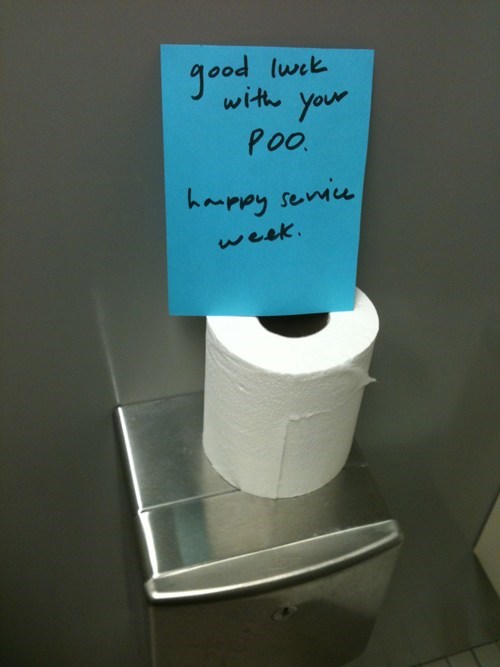 good luck
with your
POO.
happy service
week.